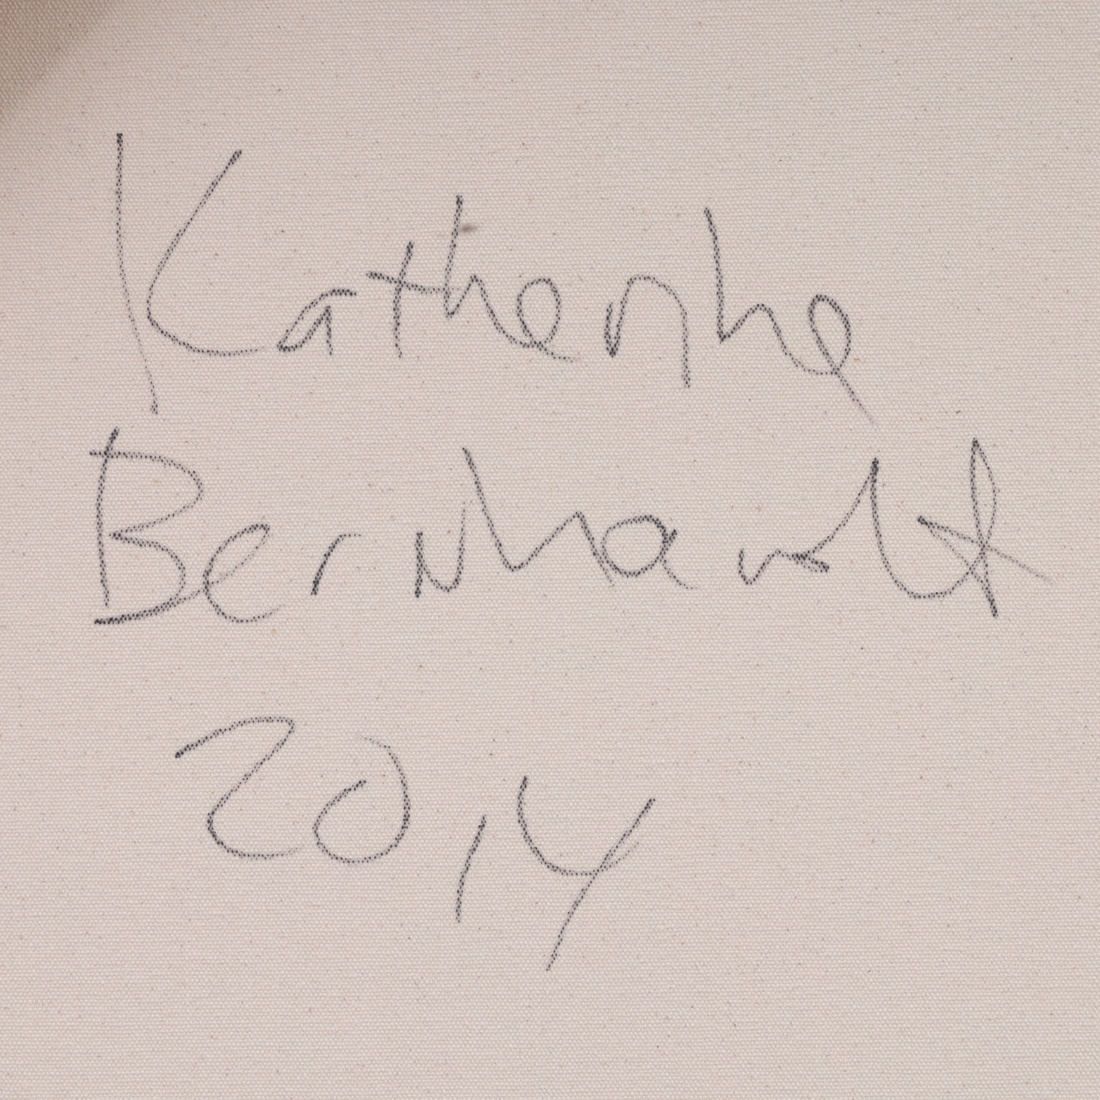 Katherine
Bernhardt
2014